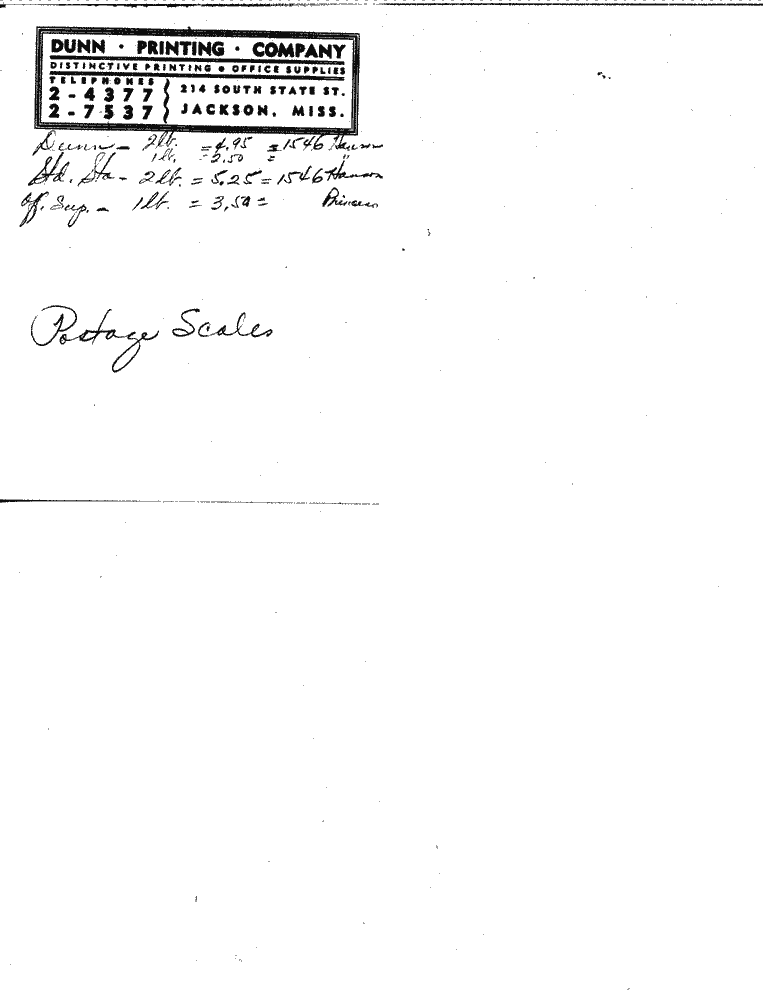 DUNN · PRINTING · COMPANY
DISTINCTIVE PRINTING • OFFICE SUPPLIES
TELEPHONES
2-4377
2-7537
214 SOUTH STATE ST.
JACKSON, MISS.
Dunn - 2 lb. = 4.95 = 1546 Hanson
1 lb. = 2.50 = "
Std. Sta - 2 lb. = 5.25 = 1546 Hanson
Of. Sup. - 1 lb. = 3.50 = Princess
Postage Scales